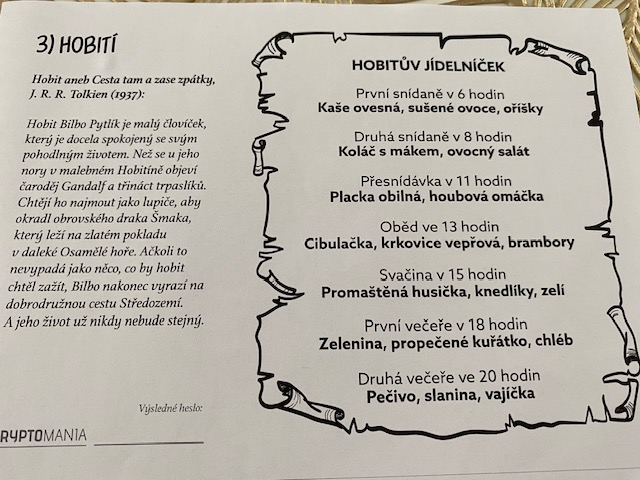 3) HOBITÍ
Hobit aneb Cesta tam a zase zpátky,
J. R. R. Tolkien (1937):
Hobit Bilbo Pytlík je malý človíček,
který je docela spokojený se svým
pohodlným životem. Než se u jeho
nory v malebném Hobitíně objeví
čaroděj Gandalf a třináct trpaslíků.
Chtějí ho najmout jako lupiče, aby
okradl obrovského draka Šmaka,
který leží na zlatém pokladu
v daleké Osamělé hoře. Ačkoli to
nevypadá jako něco, co by hobit
chtěl zažít, Bilbo nakonec vyrazí na
dobrodružnou cestu Středozemí.
A jeho život už nikdy nebude stejný.
Výsledné heslo:
RYPTOMANIA
HOBITŮV JÍDELNÍČEK
První snídaně v 6 hodin
Kaše ovesná, sušené ovoce, oříšky
Druhá snídaně v 8 hodin
Koláč s mákem, ovocný salát
Přesnídávka v 11 hodin
Placka obilná, houbová omáčka
Oběd ve 13 hodin
Cibulačka, krkovice vepřová, brambory
Svačina v 15 hodin
Promaštěná husička, knedlíky, zelí
První večeře v 18 hodin
Zelenina, propečené kuřátko, chléb
Druhá večeře ve 20 hodin
Pečivo, slanina, vajíčka